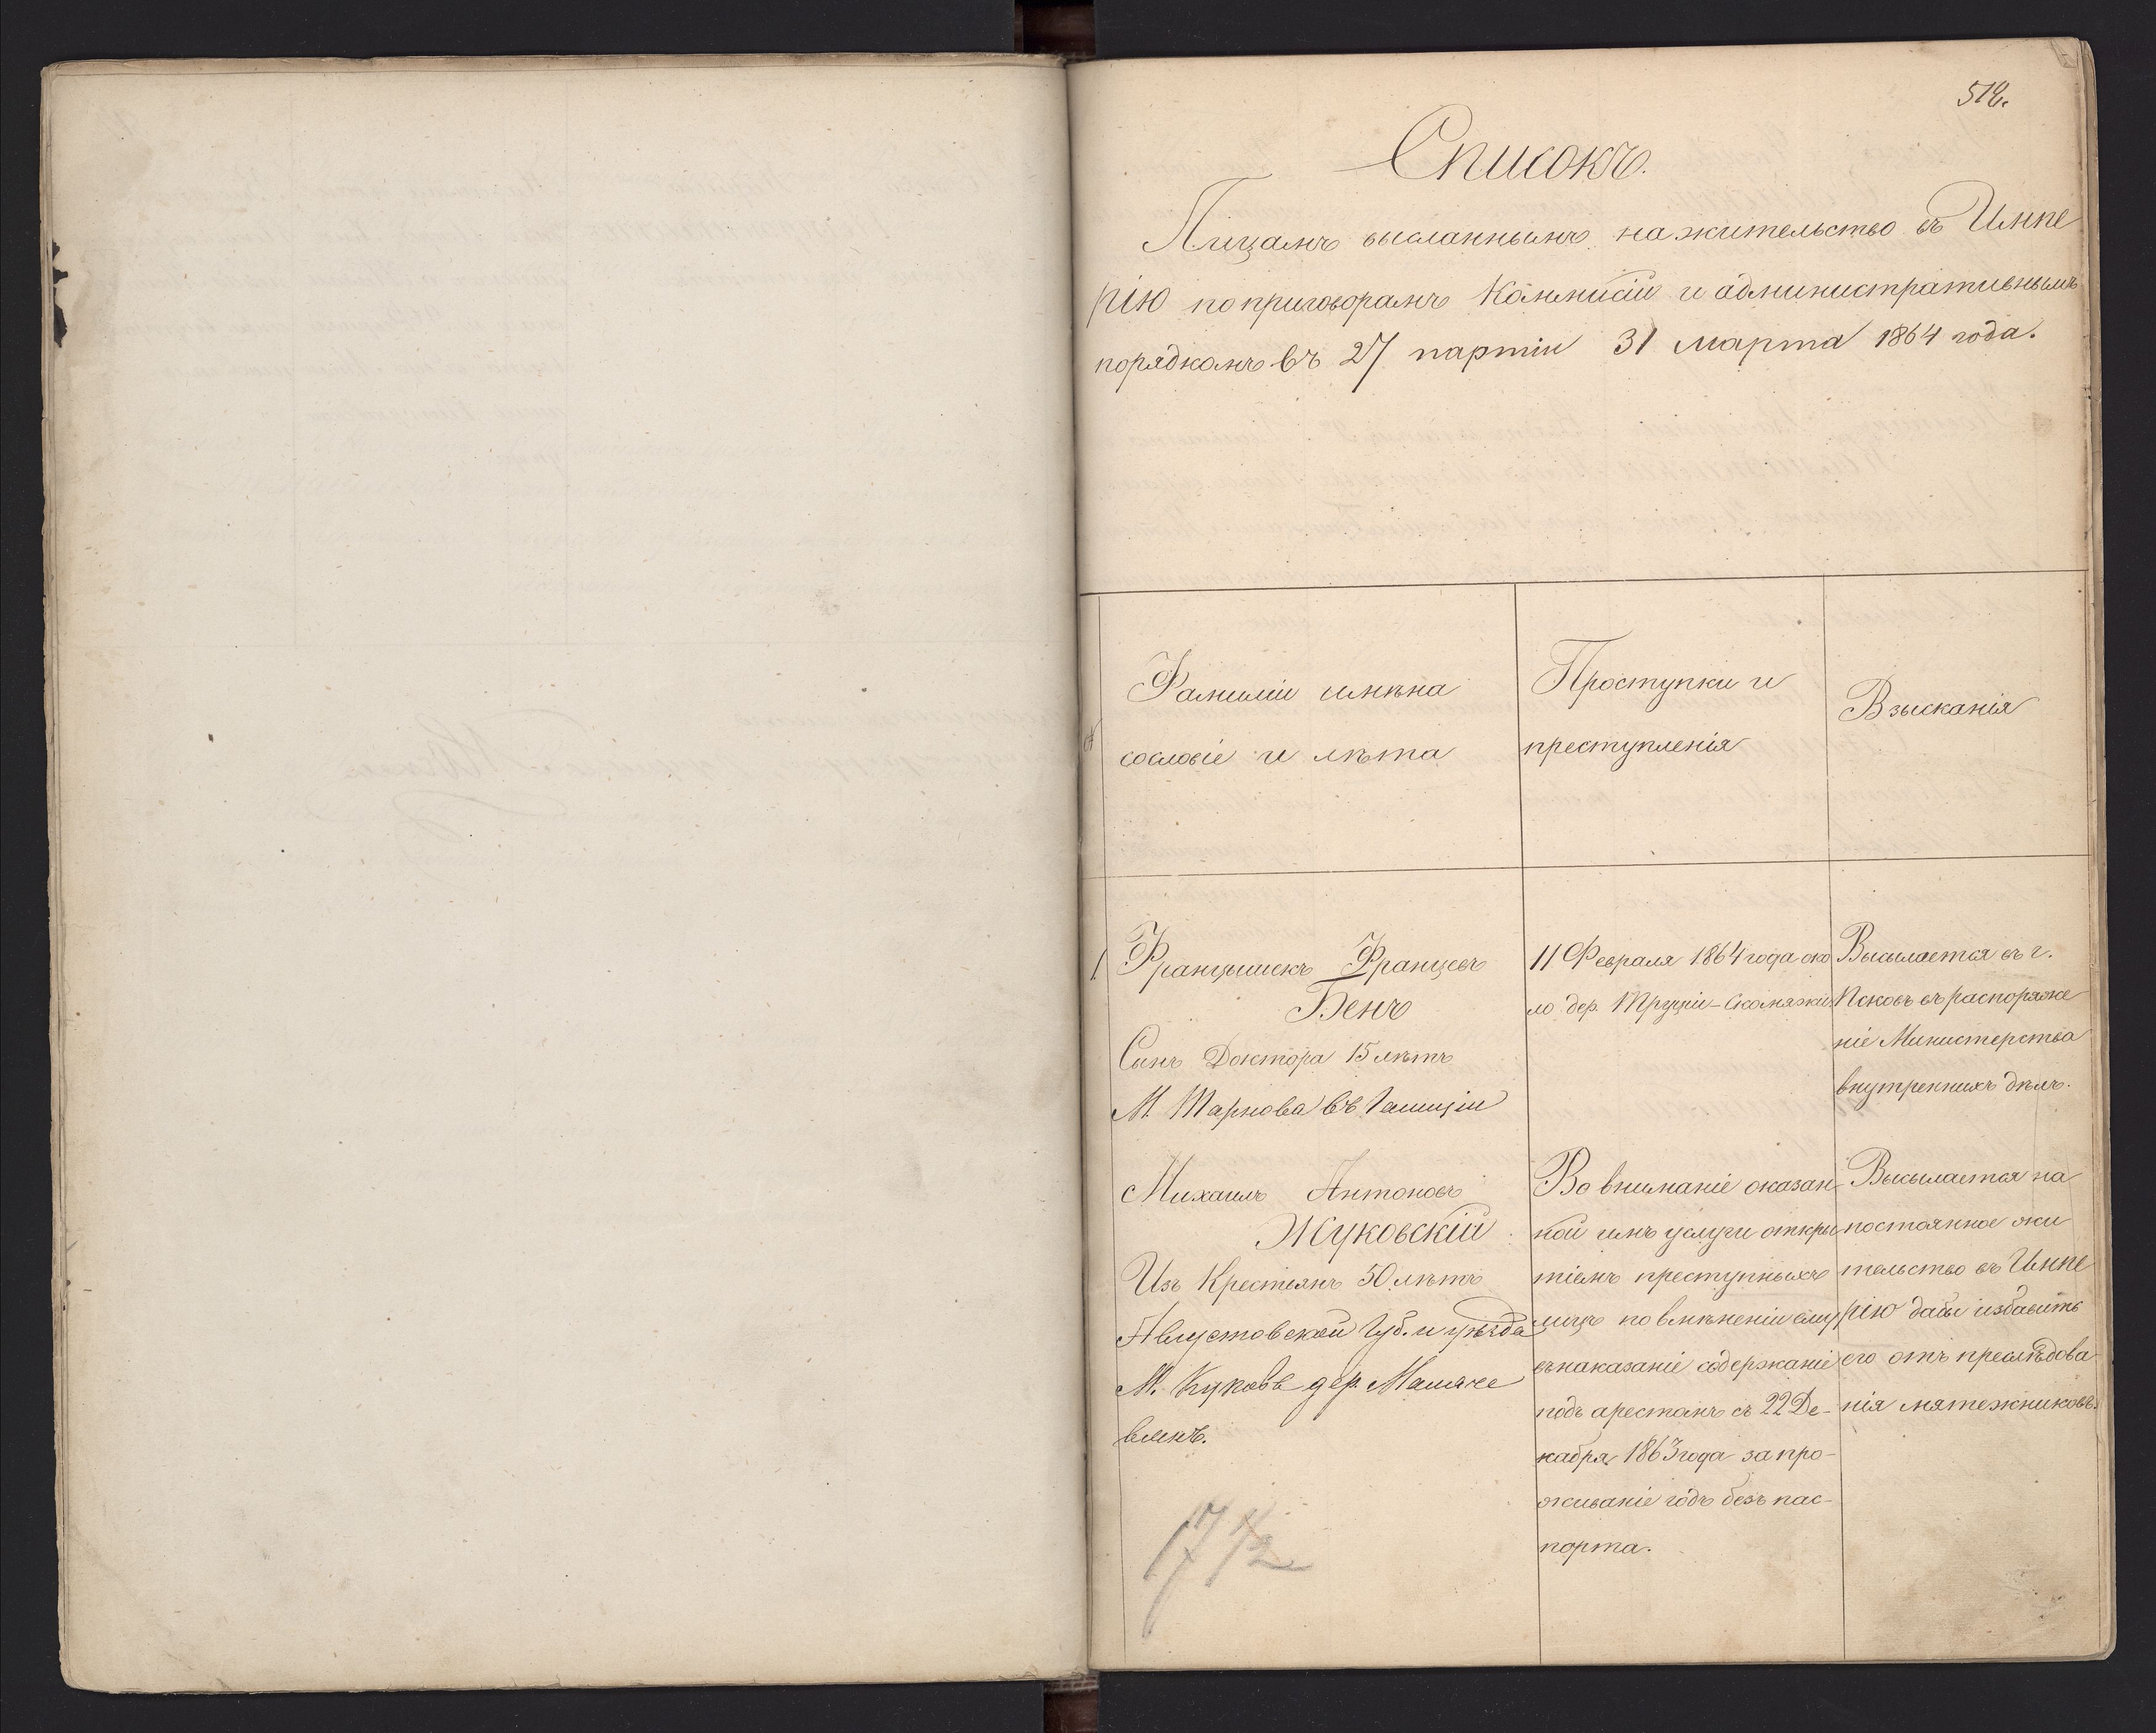 512.
Списокъ.
Лицамъ высланнымъ на жительство въ Импе
рію по приговорамъ Коммисіи и административнымъ
порядкомъ въ 27 партіи 31 марта 1864 года.
№
Фамиліи имѣна
сословіе и лѣта
Проступки и
преступленія
Взысканія
1
Францишекъ Францевъ
Бемъ
Сынъ Доктора 15 лѣтъ
М. Тарнова въ Галиціи
11 Февраля 1864 года око
ло дер.
Высылается въ г.
Псковъ въ распоряже
ніе Министерства
внутреннихъ дѣлъ.
Михаилъ Антоновъ
Жуковскій
Изъ Крестьянъ 50 лѣтъ
Августовской Губ. и уѣзда
М. дер.
Во вниманіе оказан
ной имъ услуги откры
тіемъ преступныхъ
лицъ по вмѣненіи ему
въ наказаніе содержаніе
подъ арестомъ съ 22 Де-
кабря 1863 года за про-
живаніе годъ безъ пас-
порта.
Высылается на
постоянное жи
тельство въ Импе
рію дабы избавить
его отъ преслѣдова
нія мятежниковъ.
17 1/2